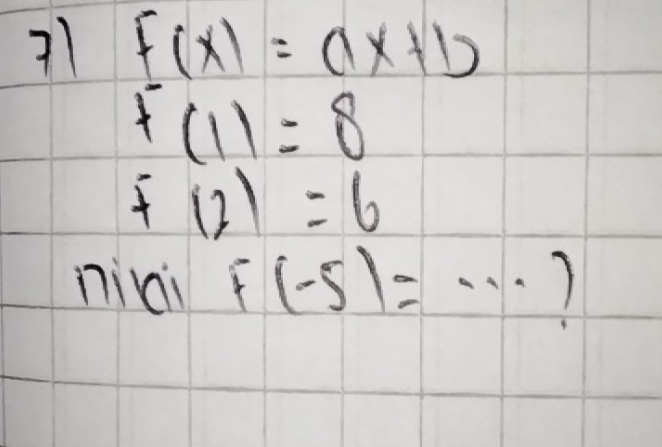 7) F(x) = ax+b
f (1) = 8
f (2) = 6
nilai F(-5) = ... ?